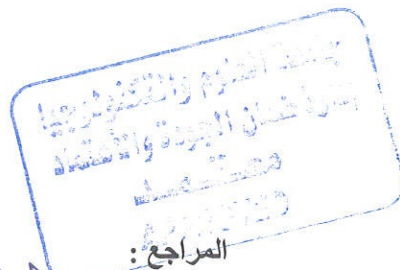 جامعة العلوم والتكنولوجيا
إدارة ضمان الجودة والاعتماد
معتمد
المراجع :